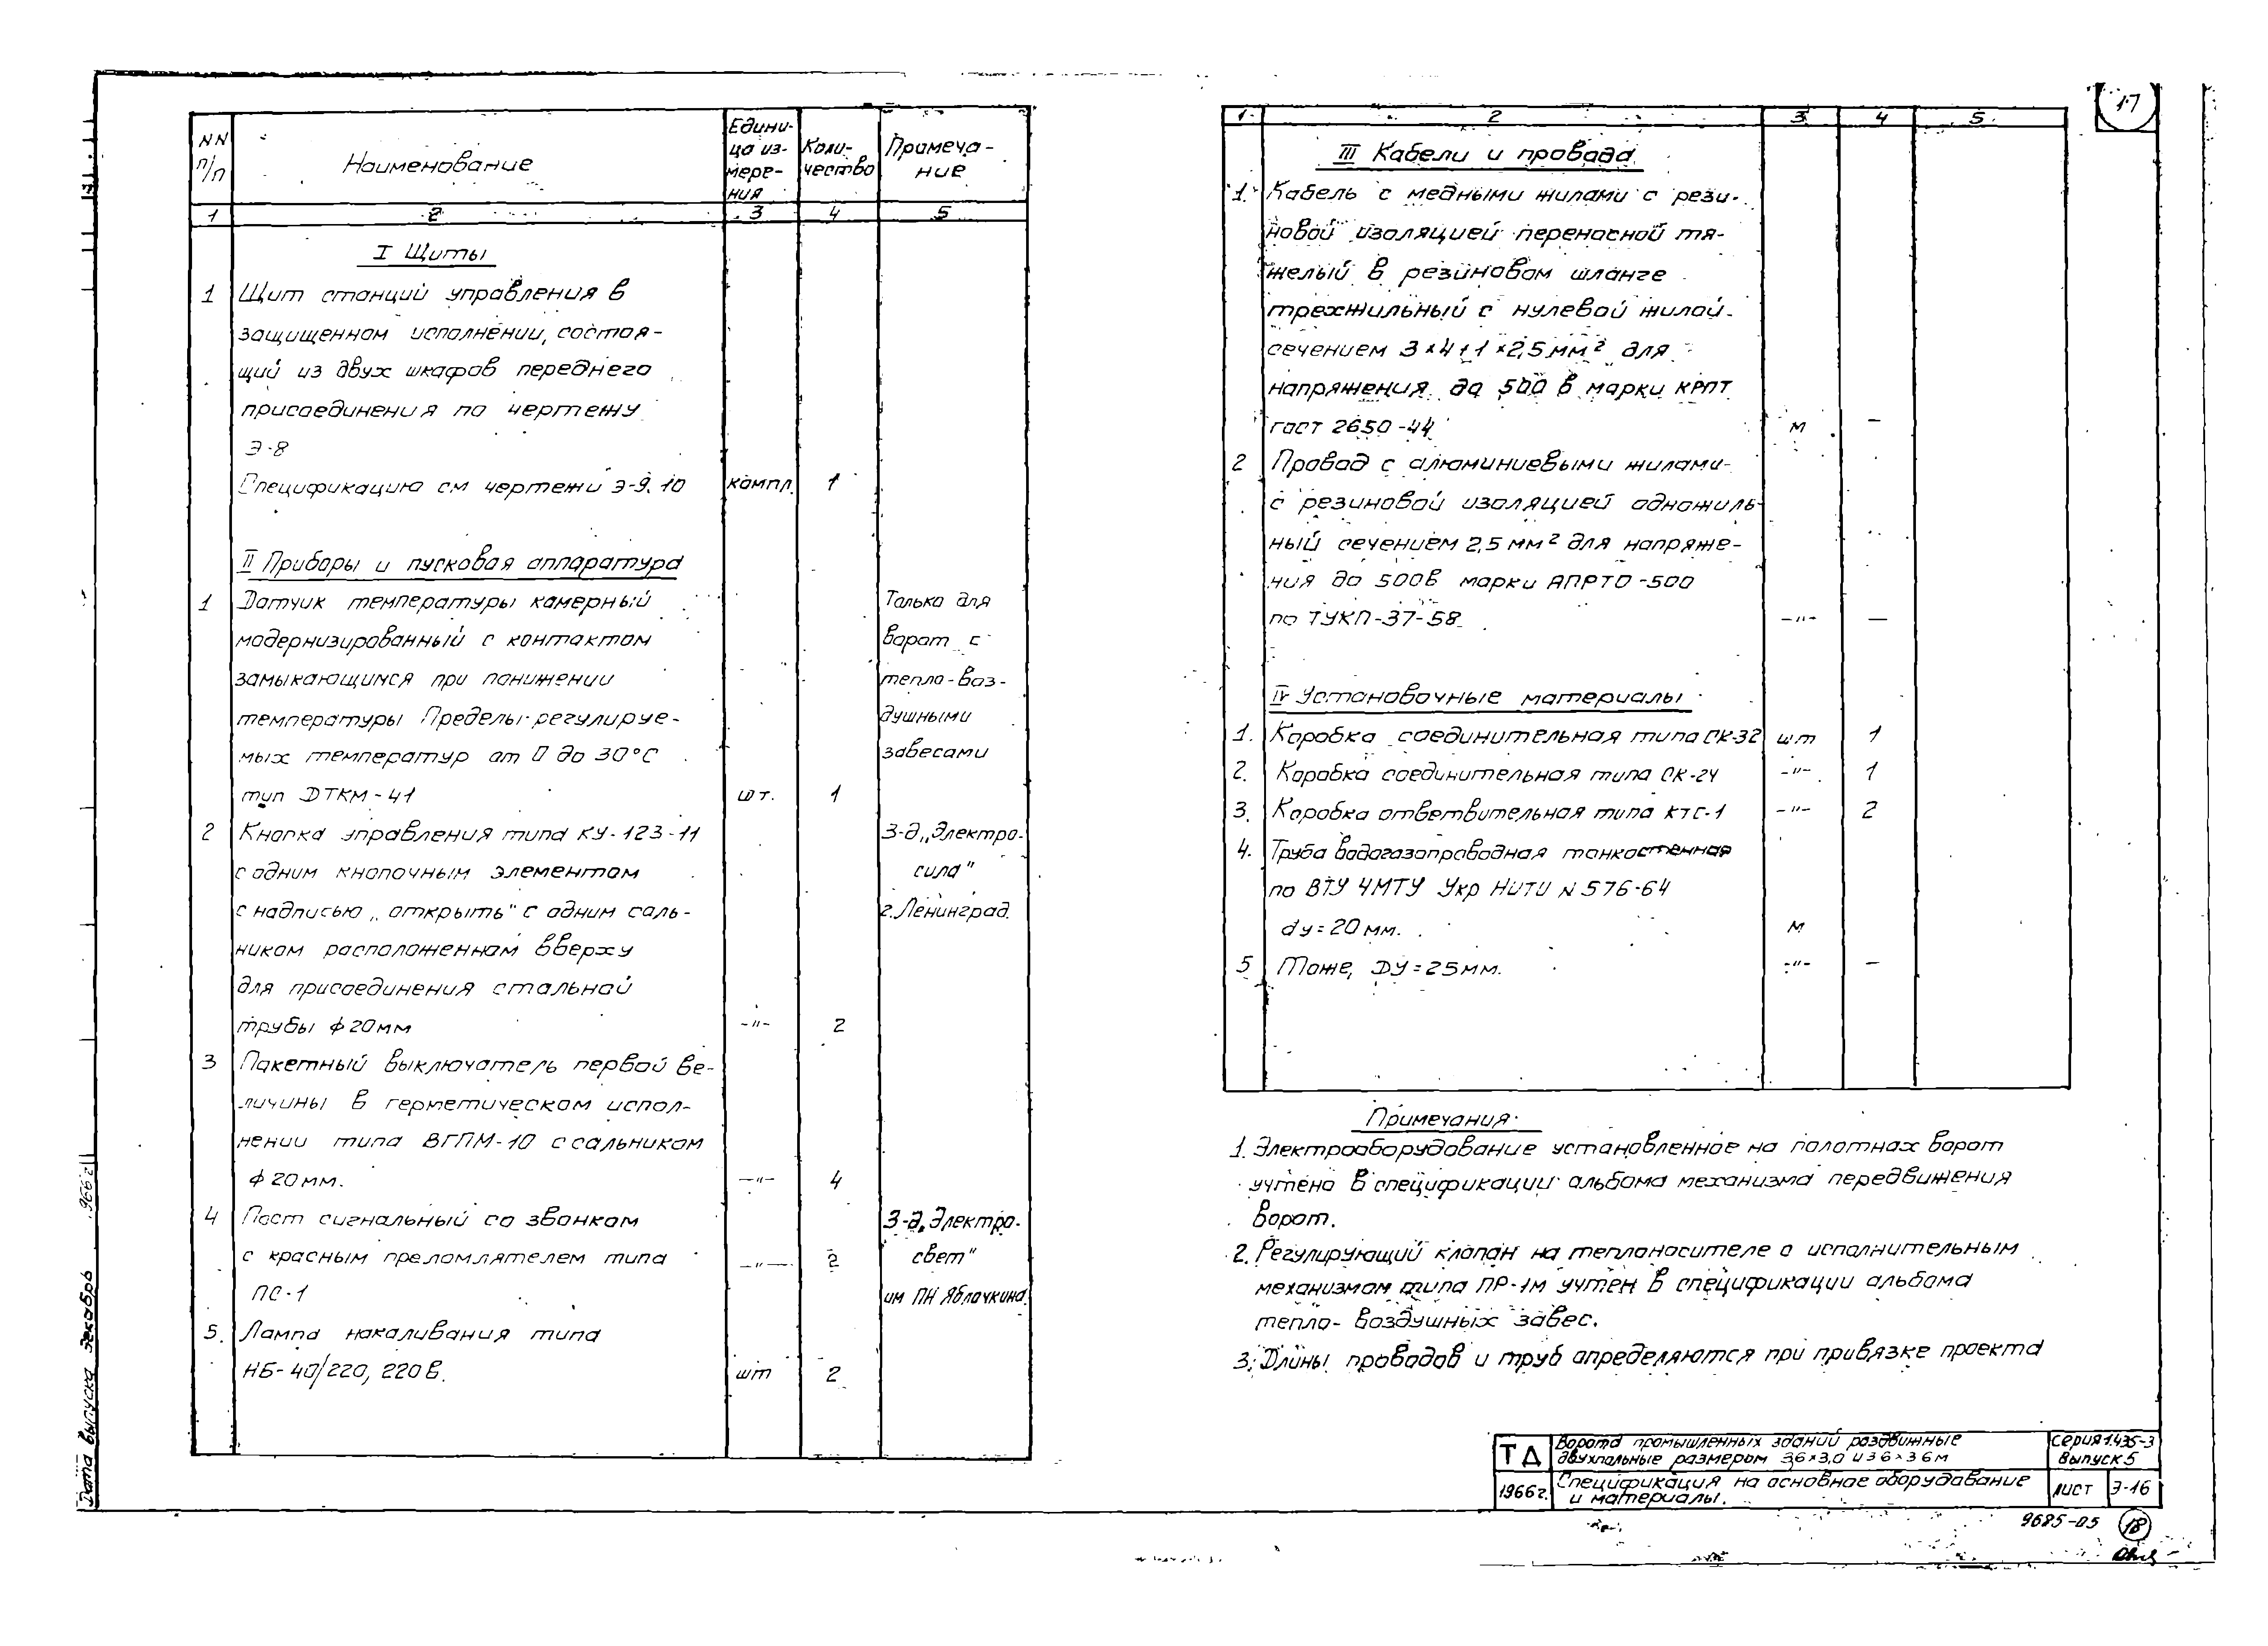 17
NN п/п
Наименование
Едини-
ца из-
мере-
ния
Коли-
чество
Примеча-
ние
1 2 3 4 5
I Щиты
1 Щит станций управления в
защищенном исполнении, состоя-
щий из двух шкафов переднего
присоединения по чертежу
Э-8
Спецификацию см чертежи Э-9, 10 компл. 1
II Приборы и пусковая аппаратура
1 Датчик температуры камерный Только для
модернизированный с контактом ворот с
замыкающимся при понижении тепло-воз-
температуры Пределы регулируе- душными
мых температур от 0 до 30°С завесами
тип ДТКМ-41 шт. 1
2 Кнопка управления типа КУ-123-11 З-д „Электро-
с одним кнопочным элементом сила"
с надписью „открыть" с одним саль- г. Ленинград.
ником расположенном вверху
для присоединения стальной
трубы ф 20мм -"- 2
3 Пакетный выключатель первой ве-
личины в герметическом испол-
нении типа ВГПМ-10 с сальником
ф 20мм. -"- 4
4 Пост сигнальный со звонком З-д „Электро-
с красным преломлятелем типа -"- 2 свет"
ПС-1 им ПН Яблочкина
5. Лампа накаливания типа
НБ-40/220, 220в. шт 2
1 2 3 4 5
III Кабели и провода
1. Кабель с медными жилами с рези-
новой изоляцией переносной тя-
желый в резиновом шланге
трехжильный с нулевой жилой
сечением 3×4+1×2,5мм² для
напряжения до 500 в марки КРПТ
гост 2650-44 м —
2 Провод с алюминиевыми жилами
с резиновой изоляцией одножиль-
ный сечением 2,5 мм² для напряже-
ния до 500в марки АПРТО-500
по ТУКП-37-58. -"- —
IV Установочные материалы
1. Коробка соединительная типа СК-32 шт 1
2. Коробка соединительная типа СК-24 -"- 1
3. Коробка ответвительная типа КТС-1 -"- 2
4. Труба водогазопроводная тонкостенная
по ВТУ ЧМТУ Укр НИТИ N 576-64
dу=20мм. м
5 Тоже, ДУ=25мм. -"- —
Примечания.
1. Электрооборудование установленное на полотнах ворот
учтено в спецификации альбома механизма передвижения
ворот.
2. Регулирующий клапан на теплоносителе с исполнительным
механизмом типа ПР-1м учтен в спецификации альбома
тепло-воздушных завес.
3. Длины проводов и труб определяются при привязке проекта
ТД
Ворота промышленных зданий раздвижные
двухпольные размером 3,6×3,0 и 3 6×3 6м
Серия 1.435-3
Выпуск 5
1966г.
Спецификация на основное оборудование
и материалы.
лист Э-16
9685-05 18
Дата выпуска декабрь 966г